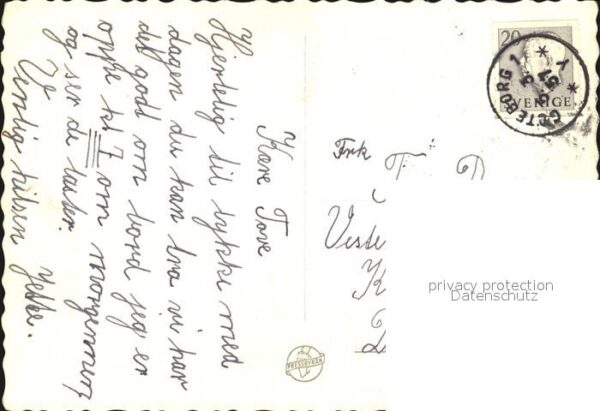 Kære Tove
Hjertelig til lykke med
dagen du kan tro vi har
det godt om bord jeg er
oppe kl 7 om morgenen
og ser de taster.
Venlig hilsen Jette.
Frk T. D.
Veste
K
20
SVERIGE
GÖTEBORG 1
privacy protection
Datenschutz